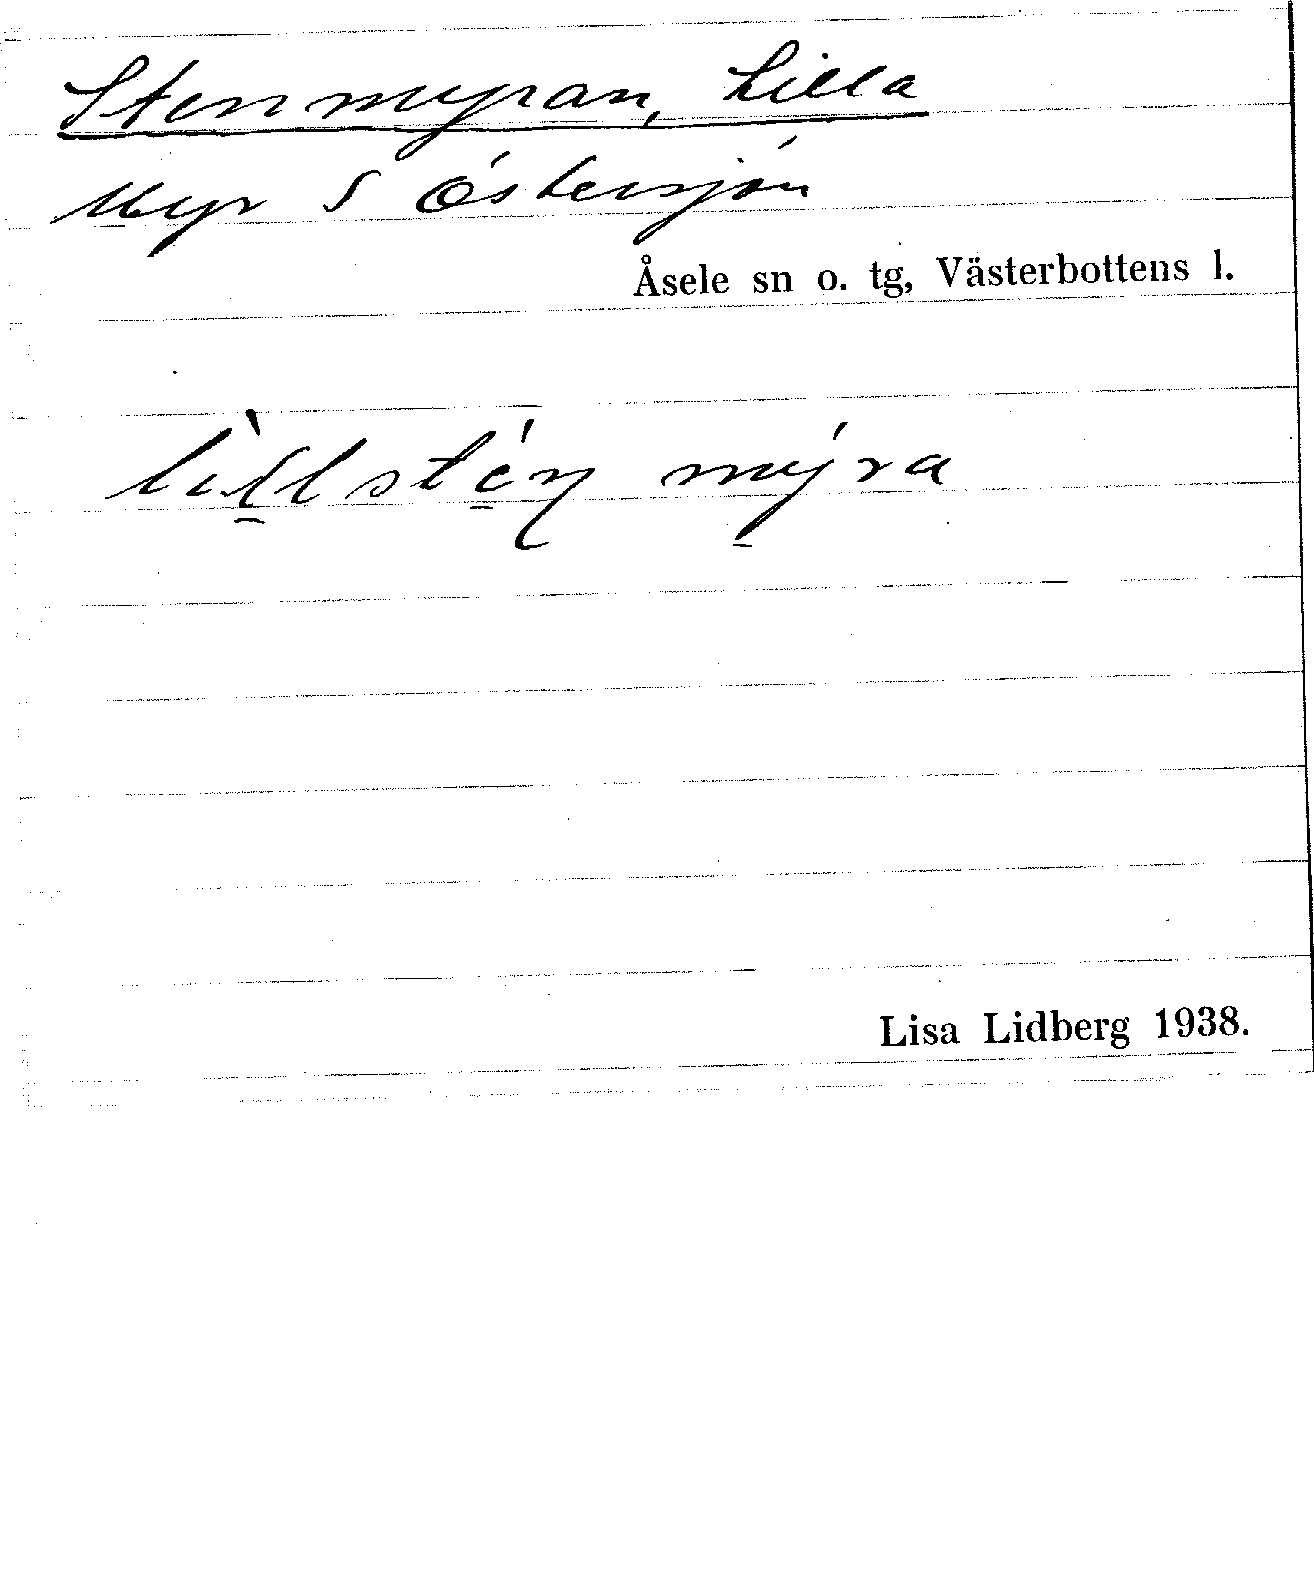 Stenmyran, Lilla
Myr S Östersjön
Åsele sn o. tg, Västerbottens l.
lìll sténmýra
Lisa Lidberg 1938.